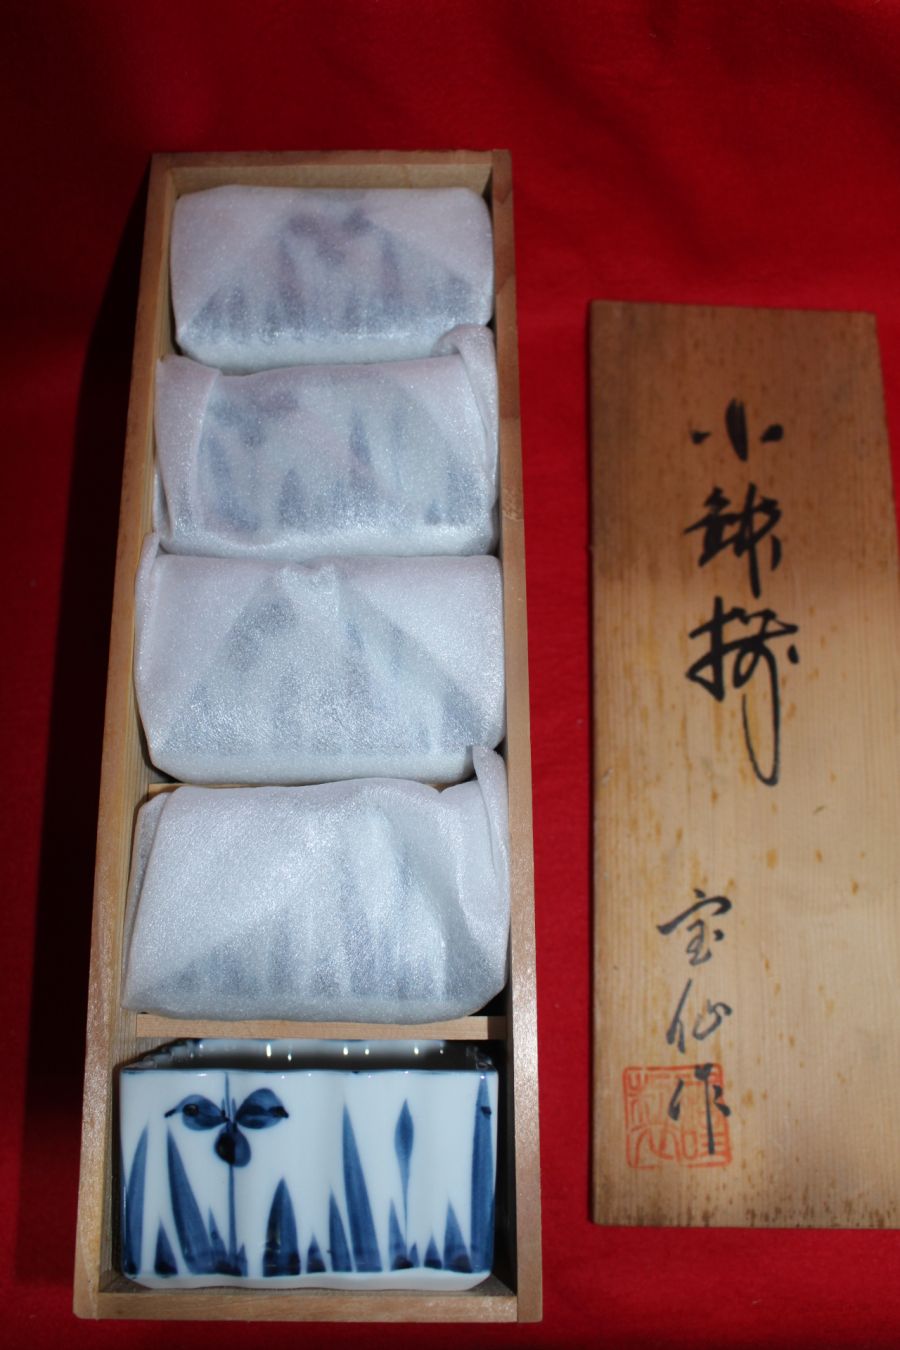 小鉢揃
宝仙作